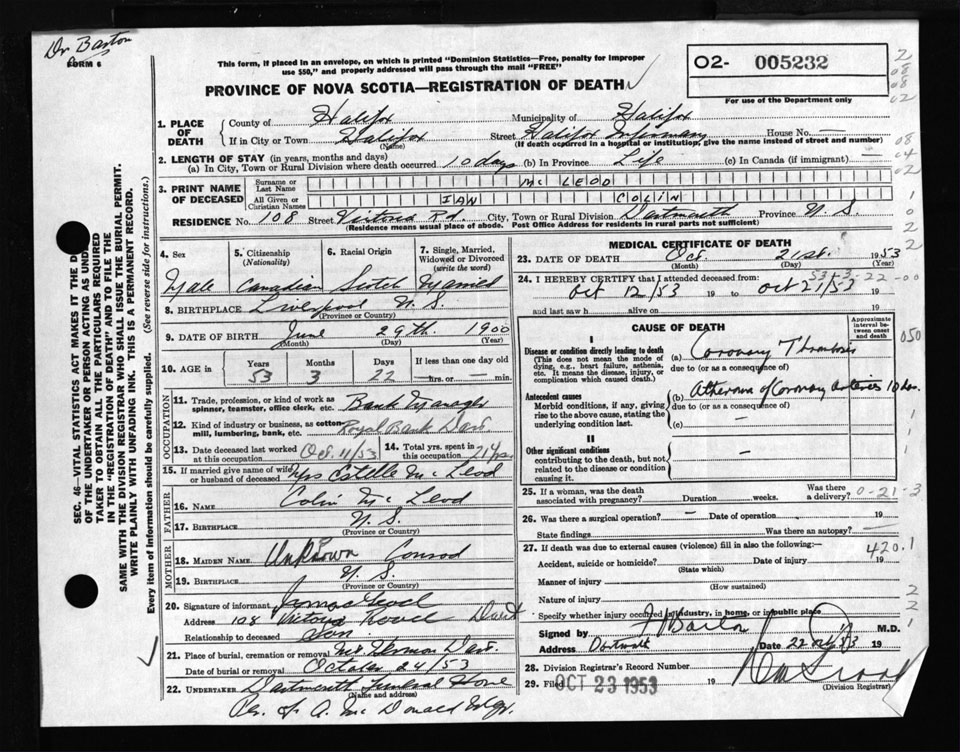 Dr Barton
FORM 6
This form, if placed in an envelope, on which is printed "Dominion Statistics—Free, penalty for improper
use $50," and properly addressed will pass through the mail "FREE"
PROVINCE OF NOVA SCOTIA—REGISTRATION OF DEATH
O2- 005232
For use of the Department only
1. PLACE OF DEATH
County of Halifax Municipality of Halifax
If in City or Town Halifax Street Halifax Infirmary House No. —
(Name) (If death occurred in a hospital or institution, give the name instead of street and number)
2. LENGTH OF STAY (in years, months and days)
(a) In City, Town or Rural Division where death occurred 10 days (b) In Province Life (c) In Canada (if immigrant) —
3. PRINT NAME OF DECEASED
Surname or Last Name McLEOD
All Given or Christian Names IAN COLIN
RESIDENCE No. 108 Street Victoria Rd. City, Town or Rural Division Dartmouth Province N.S.
(Residence means usual place of abode. Post Office Address for residents in rural parts not sufficient)
4. Sex Male
5. Citizenship (Nationality) Canadian
6. Racial Origin Scotch
7. Single, Married, Widowed or Divorced (write the word) Married
8. BIRTHPLACE Liverpool N.S.
(Province or Country)
9. DATE OF BIRTH June 29th. 1900
(Month) (Day) (Year)
10. AGE in Years 53 Months 3 Days 22 If less than one day old — hrs. or — min.
OCCUPATION
11. Trade, profession, or kind of work as spinner, teamster, office clerk, etc. Bank Manager
12. Kind of industry or business, as cotton mill, lumbering, bank, etc. Royal Bank Dart.
13. Date deceased last worked at this occupation Oct. 11/53
14. Total yrs. spent in this occupation
15. If married give name of wife or husband of deceased Mrs Estelle McLeod
FATHER
16. NAME Colin McLeod
17. BIRTHPLACE N.S.
(Province or Country)
MOTHER
18. MAIDEN NAME Unknown Conrod
19. BIRTHPLACE N.S.
(Province or Country)
20. Signature of informant
Address 108 Victoria Road Dart
Relationship to deceased Son
21. Place of burial, cremation or removal Mt Hermon Dart.
Date of burial or removal October 24/53
22. UNDERTAKER Dartmouth Funeral Home
(Name and address)
Per. A. McDonald Mgr.
MEDICAL CERTIFICATE OF DEATH
23. DATE OF DEATH Oct. 21st. 1953
(Month) (Day) (Year)
53-3-22-00
24. I HEREBY CERTIFY that I attended deceased from:
Oct 12/53 19 to Oct 21/53 19
and last saw h alive on 19
CAUSE OF DEATH
Approximate interval between onset and death
I
Disease or condition directly leading to death
(This does not mean the mode of dying, e.g., heart failure, asthenia, etc. It means the disease, injury, or complication which caused death.)
(a) Coronary Thrombosis
due to (or as a consequence of)
Antecedent causes
Morbid conditions, if any, giving rise to the above cause, stating the underlying condition last.
(b) Atheroma of Coronary Arteries
due to (or as a consequence of)
(c) —
II
Other significant conditions
contributing to the death, but not related to the disease or condition causing it.
—
25. If a woman, was the death associated with pregnancy? Duration weeks. Was there a delivery? 0-21-3
26. Was there a surgical operation? — Date of operation 19
State findings Was there an autopsy? —
27. If death was due to external causes (violence) fill in also the following:— 420.1
Accident, suicide or homicide? Date of injury 19
(State which)
Manner of injury
(How sustained)
Nature of injury
Specify whether injury occurred in industry, in home, or in public place
Signed by M.D.
Address Date 22 Oct/53 19
28. Division Registrar's Record Number
29. Filed OCT 23 1953 19
(Division Registrar)
SEC. 46—VITAL STATISTICS ACT MAKES IT THE D
OF THE UNDERTAKER OR PERSON ACTING AS UND
TAKER TO OBTAIN ALL THE PARTICULARS REQUIRED
IN THE "REGISTRATION OF DEATH" AND TO FILE THE
SAME WITH THE DIVISION REGISTRAR WHO SHALL ISSUE THE BURIAL PERMIT.
WRITE PLAINLY WITH UNFADING INK. THIS IS A PERMANENT RECORD.
Every item of information should be carefully supplied. (See reverse side for instructions.)